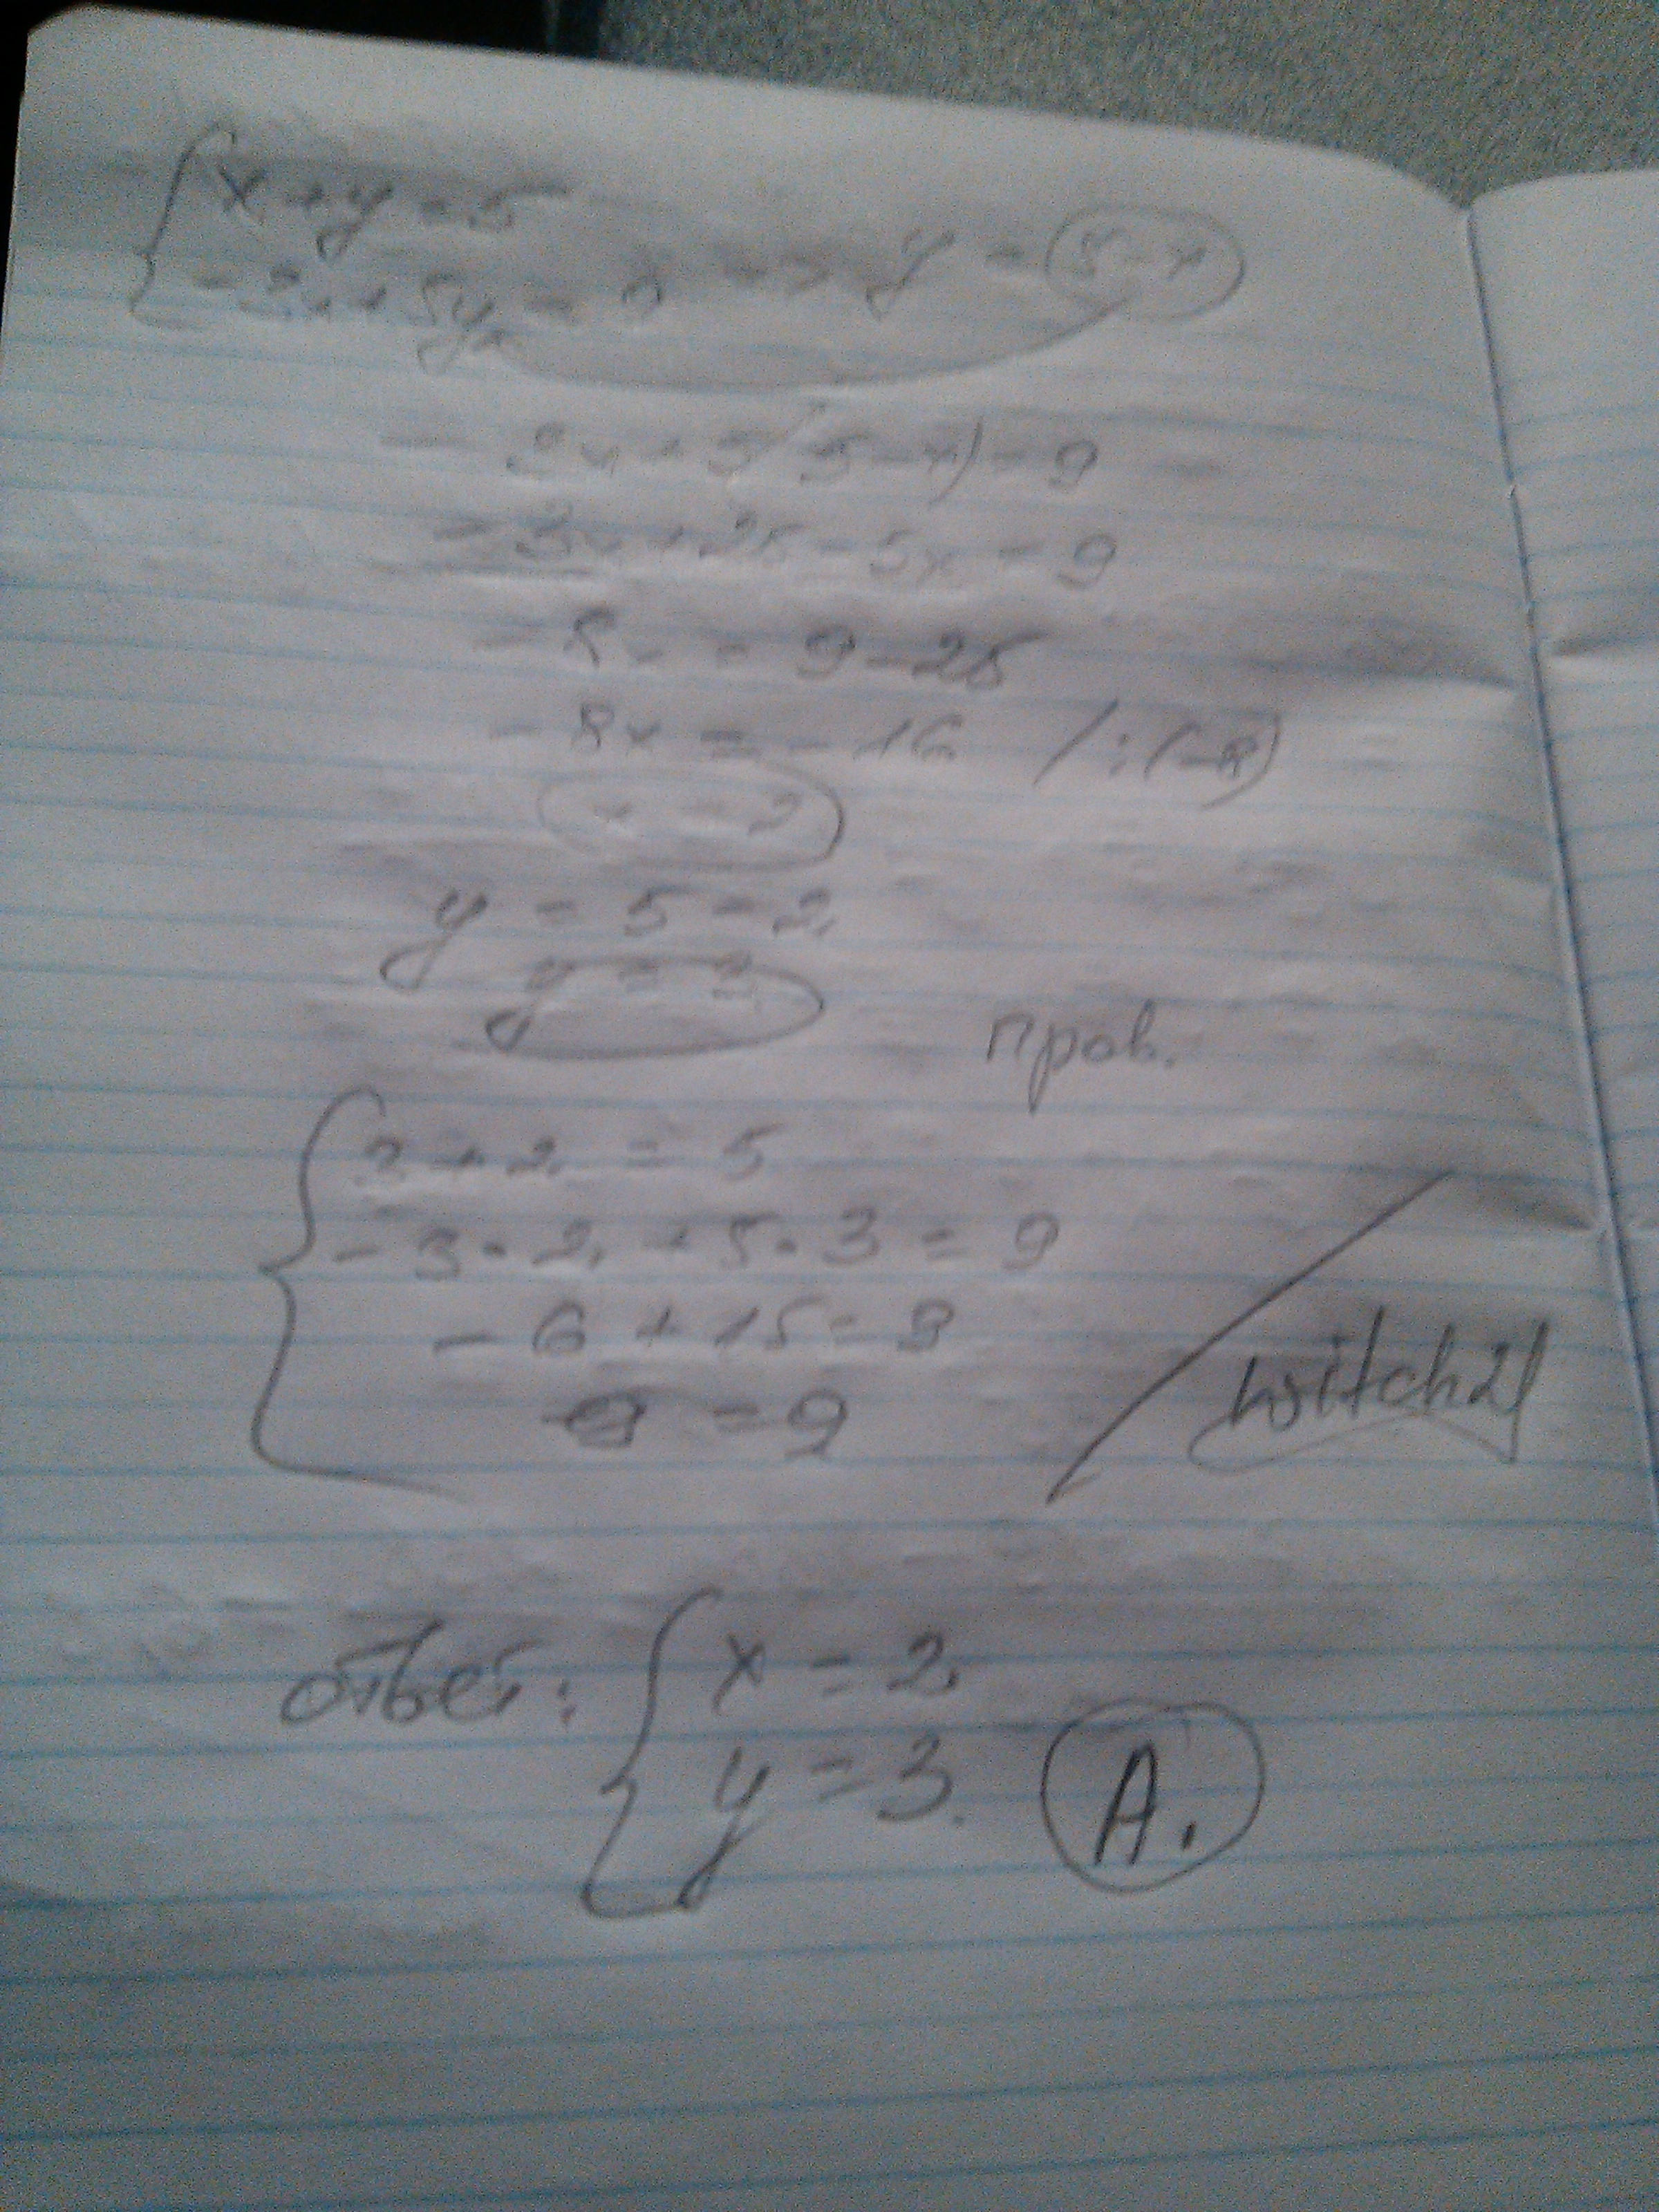 x + y = 5
-3x + 5y = 9 => y = 5-x
- 3x + 5(5-x) = 9
- 3x + 25 - 5x = 9
- 8x = 9 - 25
- 8x = - 16 / : (-8)
x = 2
y = 5 - 2
y = 3
пров.
3 + 2 = 5
- 3 · 2 + 5 · 3 = 9
- 6 + 15 = 9
9 = 9
witch21
ответ: x = 2
y = 3. A.